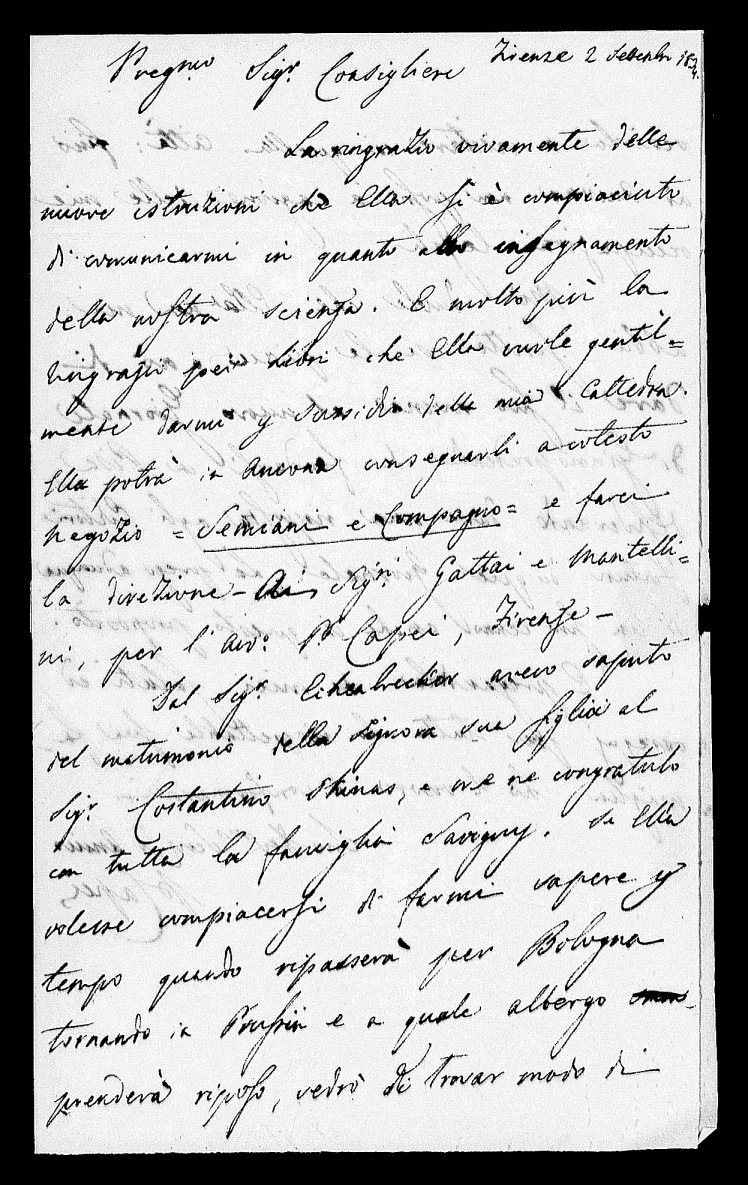 Pregmo Sigr. Consigliere Firenze 2 Settembr 1834.
La ringrazio vivamente delle
nuove istruzioni che Ella si è compiaciuto
di comunicarmi in quanto allo insegnamento
della nostra scienza. E molto più la
ringrazio pei Libri che Ella vuole gentil=
mente darmi p sussidio della mia Cattedra.
Ella potrà in Ancona consegnarli a cotesto
Negozio = Semiani e Compagno = e farci
la direzione - Ai Sigri. Gattai e Mantelli=
ni, per l'Avv: P. Capei, Firenze -
Dal Sigr. aveva saputo
del matrimonio della Signora sua figlia al
Sigr. Costantino Skinas, e me ne congratulo
con tutta la famiglia Savigny. Se Ella
volesse compiacersi di farmi sapere p
tempo quando ripasserà per Bologna
tornando in Prussia e a quale albergo
prenderà riposo, vedrò di trovar modo di